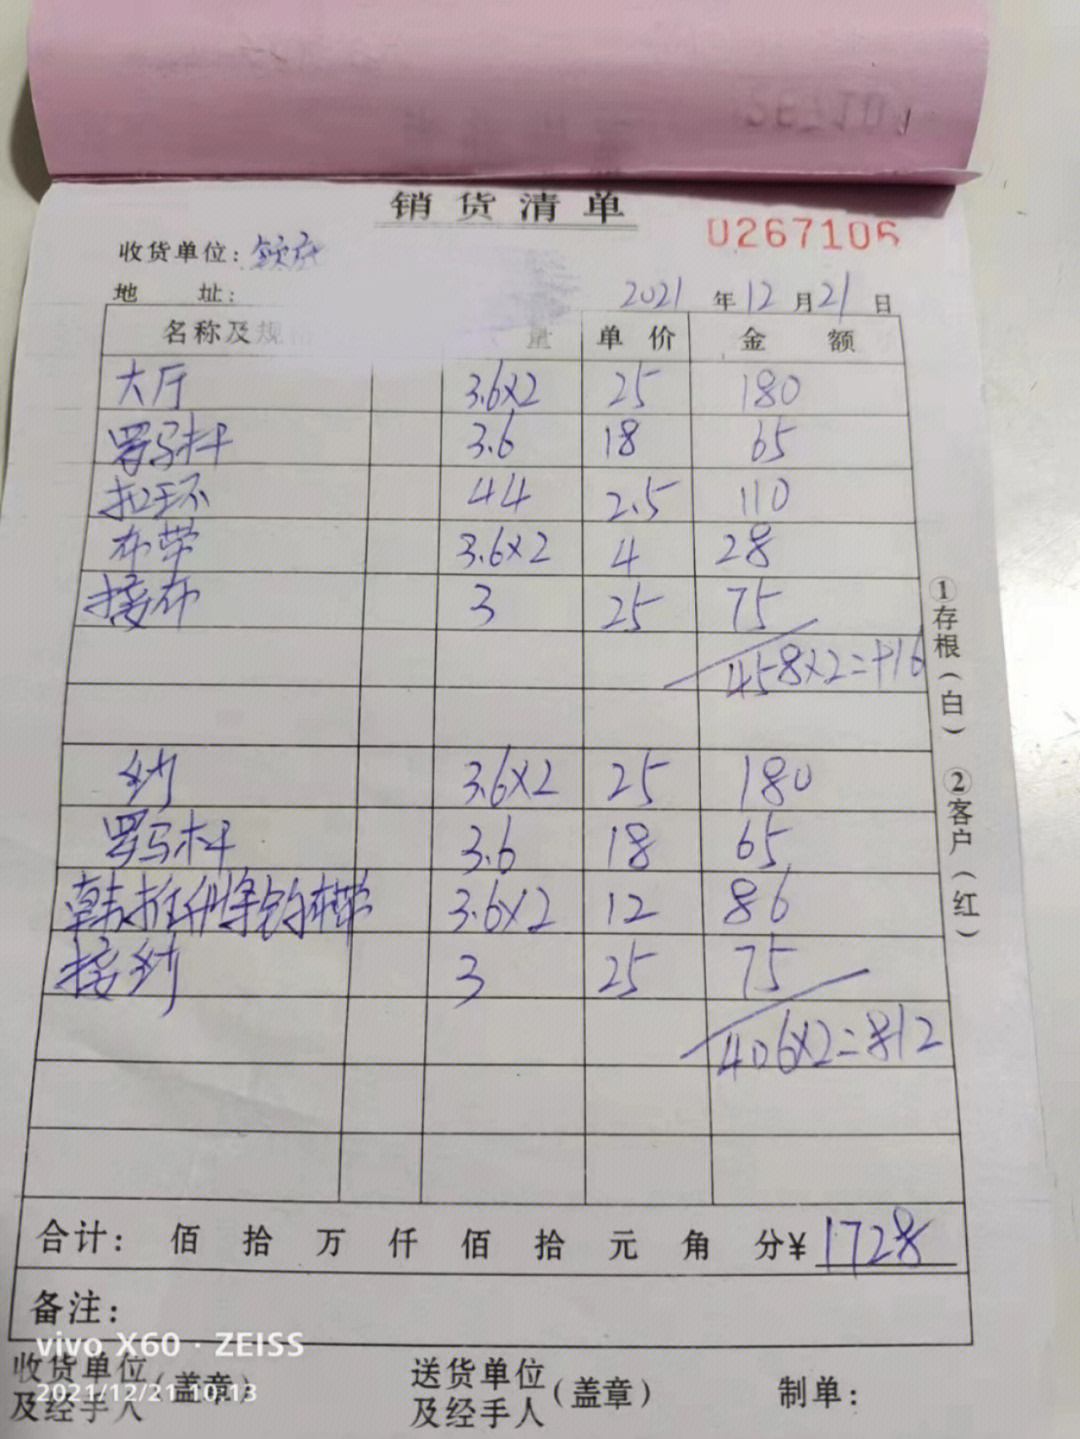 销货清单
0267106
收货单位:
地 址: 2021 年 12 月 21 日
名称及规 量 单价 金额
大厅 3.6×2 25 180
罗马杆 3.6 18 65
扣环 44 2.5 110
布带 3.6×2 4 28
接布 3 25 75
458×2=916
纱 3.6×2 25 180
罗马杆 3.6 18 65
3.6×2 12 86
接纱 3 25 75
406×2=812
合计: 佰 拾 万 仟 佰 拾 元 角 分¥ 1728
备注:
收货单位及经手人(盖章) 送货单位及经手人(盖章) 制单:
①存根(白) ②客户(红)
vivo X60 · ZEISS
2021/12/21 10:13